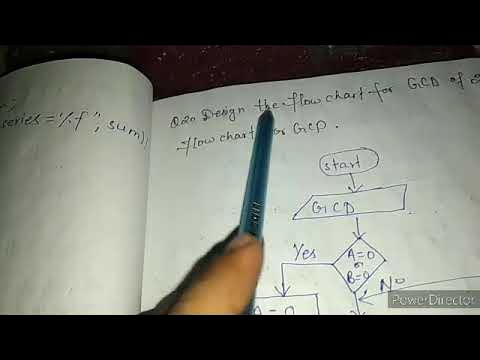 series = "%f", sum);
Q20 Design the flow chart for GCD of
flow chart for GCD.
start
GCD
Yes
A=0
or
B=0
NO
A = 0
PowerDirector